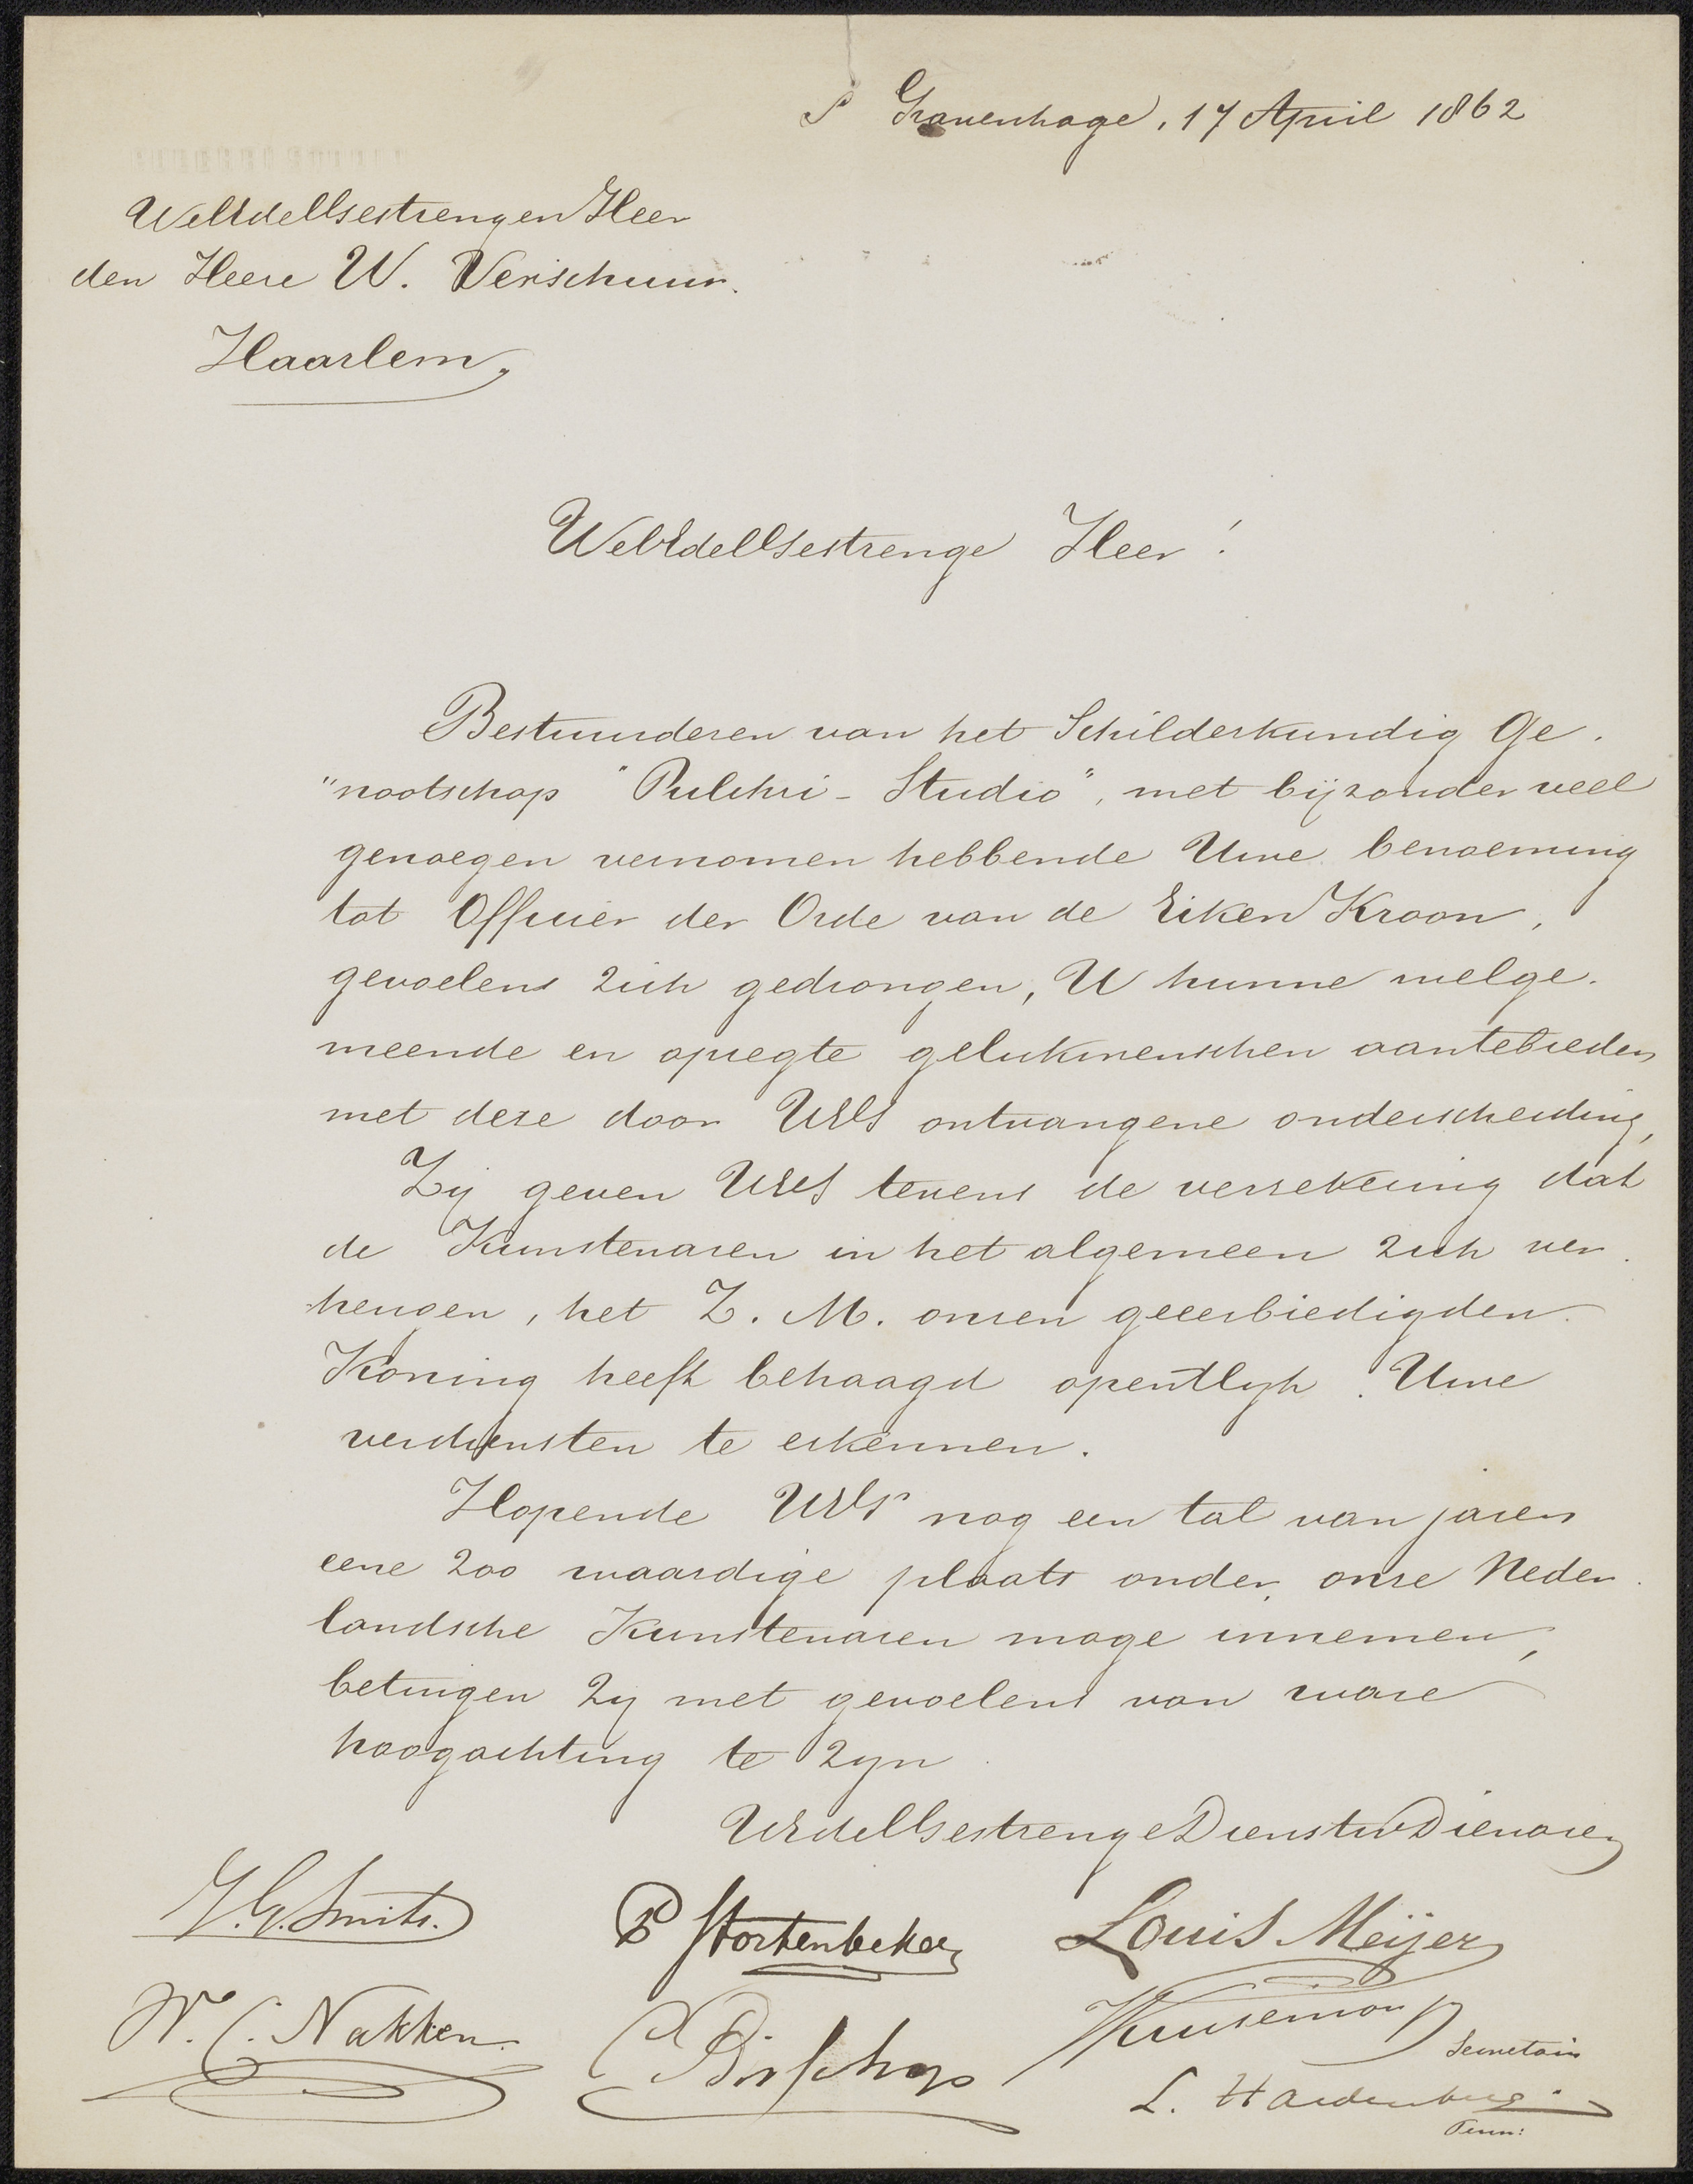 S Gravenhage, 17 April 1862
WelEdelGestrengen Heer
den Heere W. Verschuur.
Haarlem,
WelEdelGestrenge Heer!
Bestuurderen van het Schilderkundig Ge.
"nootschap "Pulchri-Studio", met bijzonder veel
genoegen vernomen hebbende Uwe benoeming
tot Officier der Orde van de Eiken Kroon,
gevoelens zich gedrongen, U hunne welge.
meende en opregte gelukwenschen aantebieden
met deze door UEG ontvangene onderscheiding,
Zij geven UEG tevens de verzekering dat
de Kunstenaren in het algemeen zich ver.
heugen, het Z. M. onzen geeerbiedigden
Koning heeft behaagd opentlyk Uwe
verdiensten te erkennen.
Hopende UEG nog een tal van jaren
eene zoo waardige plaats onder onze Neder.
landsche Kunstenaren moge innemen,
betuigen zy met gevoelens van ware
hoogachting te zyn
UEdelGestrenge Dienstw Dienaren
J. G. Smits.
P Stortenbeker
Louis Meijer
W. C. Nakken.
C Bisschop
Kruseman
Secretaris
L. Hardenberg.
Penn: